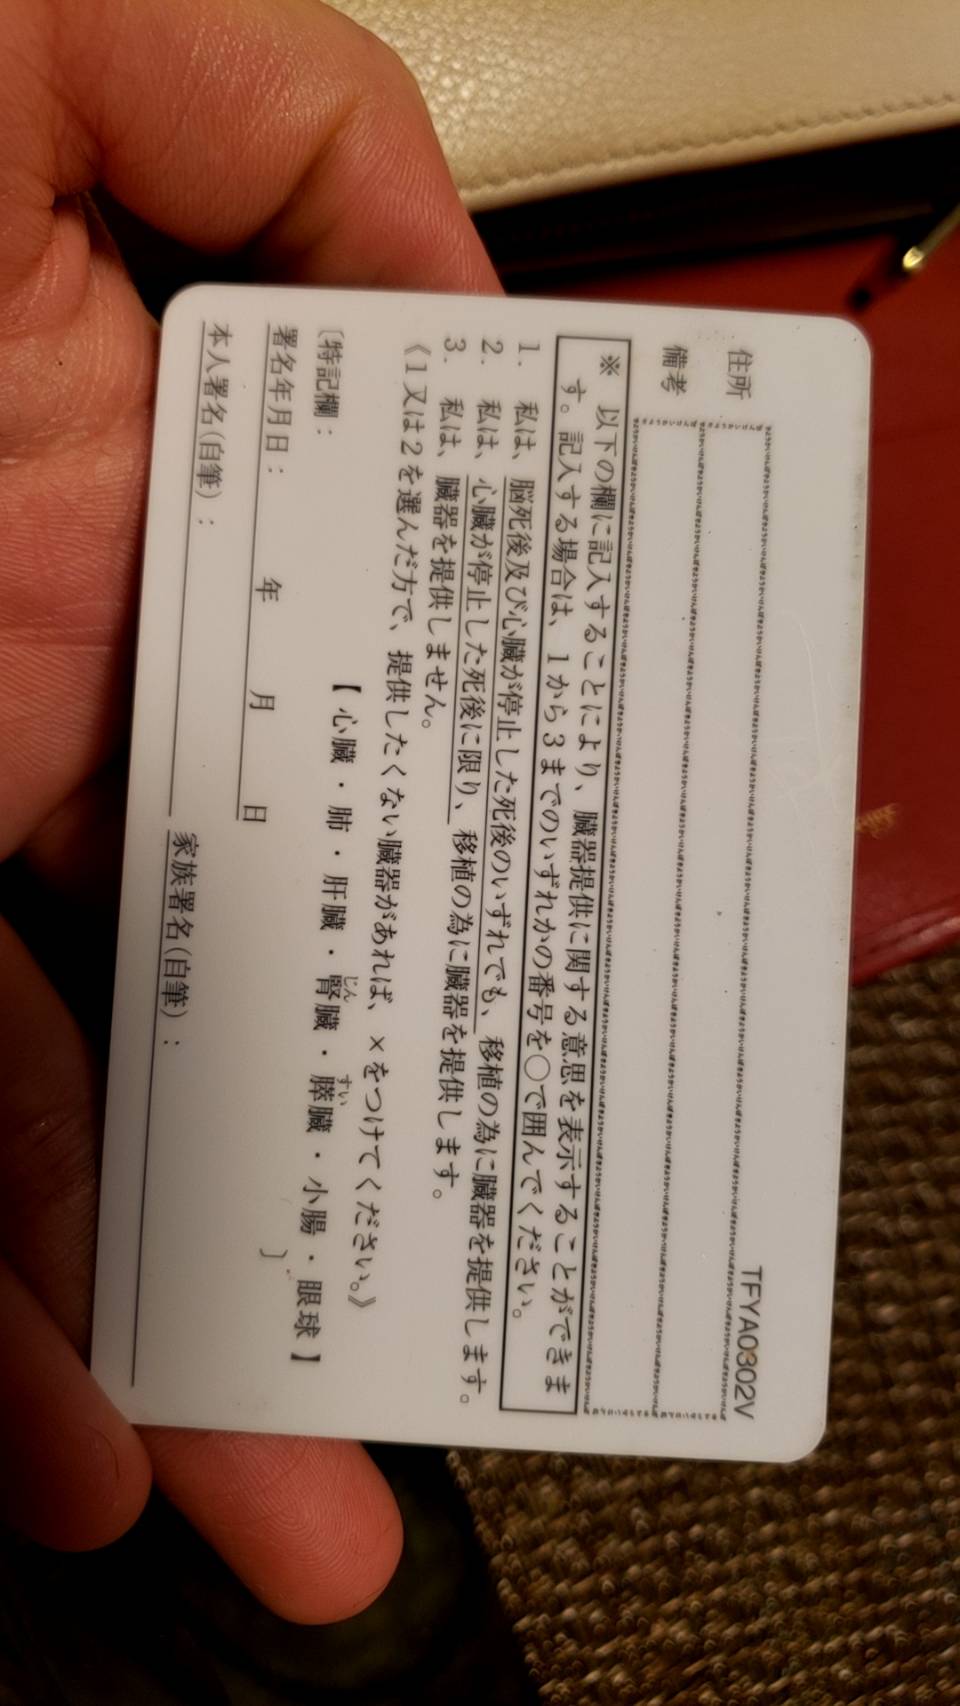 TFYA0302V
住所
備考
※ 以下の欄に記入することにより、臓器提供に関する意思を表示することができま
す。記入する場合は、1から3までのいずれかの番号を○で囲んでください。
1. 私は、脳死後及び心臓が停止した死後のいずれでも、移植の為に臓器を提供します。
2. 私は、心臓が停止した死後に限り、移植の為に臓器を提供します。
3. 私は、臓器を提供しません。
《1又は2を選んだ方で、提供したくない臓器があれば、×をつけてください。》
【 心臓・肺・肝臓・腎臓・膵臓・小腸・眼球 】
じん すい
〔特記欄： 〕
署名年月日： 年 月 日
本人署名(自筆)： 家族署名(自筆)：